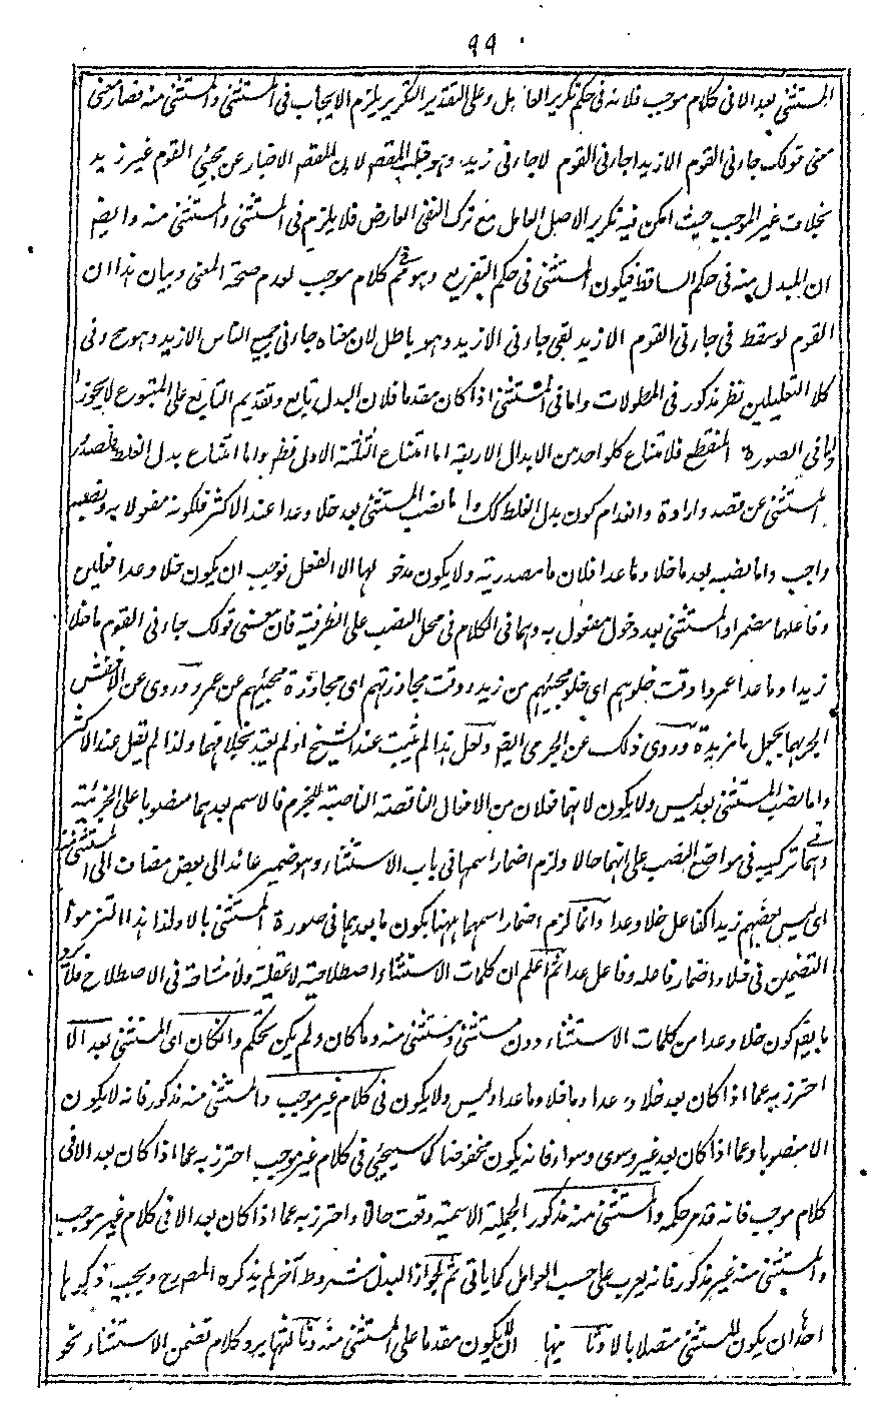 ٩٩
المستثنى بعد الا فى كلام موجب فلانه فى حكم تكرير العامل وعلى التقدير التكرير يلزم الايجاب فى المستثنى والمستثنى منه فصار معنى
معنى قولك جاءنى القوم الا زيدا جاءنى القوم لا جاءنى زيد وهو قلب المقصم لان المقصم الاخبار عن مجيئ القوم غير زيد
بخلاف غير الموجب حيث امكن فيه تكرير الاصل العامل مع ترك النفى العارض فلا يلزم فى المستثنى والمستثنى منه وايضم
ان المبدل منه فى حكم الساقط فيكون المستثنى فى حكم التفريع وهو فى كلام موجب لعدم صحة المعنى وبيان هذا ان
القوم لو سقط فى جاءنى القوم الا زيد لقى جاءنى الا زيد وهو باطل لان معناه جاءنى جميع الناس الا زيد وهو ح وفى
كلا التعليلين نظر مذكور فى المطولات واما فى المستثنى اذا كان مقدما فلان البدل تابع وتقديم التابع على المتبوع لا يجوز
واما فى الصورة المنقطع فلامتناع كل واحد من الابدال الاربعة اما امتناع الثلثة الاول فظم واما امتناع بدل الغلط فلصدور
المستثنى عن قصد وارادة وانعدام كون بدل الغلط كك واما نصب المستثنى بعد خلا وعدا عند الاكثر فلكونه مفعولا به ونصبه
واجب واما نصبه بعد ما خلا وما عدا فلان ما مصدرية ولا يكون مدخولها الا الفعل فوجب ان يكون خلا وعدا فعلين
وفاعلهما مضمر او المستثنى بعد دخول مفعول به وهما فى الكلام فى محل النصب على الظرفية فان معنى قولك جاءنى القوم ما خلا
زيدا وما عدا عمروا وقت خلوهم اى خلو مجيئهم من زيد ووقت مجاوزتهم اى مجاوزة مجيئهم عن عمرو وروى عن الاخفش
الجر بهما بجعل ما مزيدة وروى ذلك عن الجرمى ايضم ولعل هذا لم يثبت عند الشيخ او لم يعتد بخلافهما ولذا لم يقل عند الاكثر
واما نصب المستثنى بعد ليس ولا يكون لانهما فلان من الافعال الناقصة الناصبة للخبر فالاسم بعدهما منصوبا على الخبرية
وهما تركيب فى مواضع النصب على انهما حالا ولزم اضمار اسمها فى باب الاستثناء وهو ضمير عائد الى بعض مضاف الى المستثنى منه
اى ليس بعضهم زيدا كفاعل خلا وعدا وانما لزم اضمار اسمهما ههنا يكون ما بعدهما فى صورة المستثنى بالا ولذا هذا التزموا
التضمين فى خلا واضمار فاعله وفاعل عدا ثم اعلم ان كلمات الاستثناء اصطلاحية لا عقلية ولا مشاحة فى الاصطلاح فلا يرد
ما يقم كون خلا وعدا من كلمات الاستثناء دون مستثنى ومستثنى منه وما كان ولم يكن تحكم وان كان اى المستثنى بعد الا
احترز به عما اذا كان بعد خلا وعدا وما خلا وما عدا وليس ولا يكون فى كلام غير موجب والمستثنى منه مذكور فانه لا يكون
الا منصوبا وعما اذا كان بعد غير وسوى وسواء فانه يكون مخفوضا كما سيجيئ فى كلام غير موجب احترز به عما اذا كان بعد الا فى
كلام موجب فانه قد مر حكمه والمستثنى منه مذكور الجملة الاسمية وقعت حالا واحترز به عما اذا كان بعد الا فى كلام غير موجب
والمستثنى منه غير مذكور فانه يعرب على حسب العوامل كما ياتى ثم لجواز البدل شروط آخر لم يذكره المص رح ويجب ذكرها
احدها ان يكون المستثنى متصلا بالا وثانيها ان لا يكون مقدما على المستثنى منه وثالثها يرد كلام تضمن الاستثناء نحو